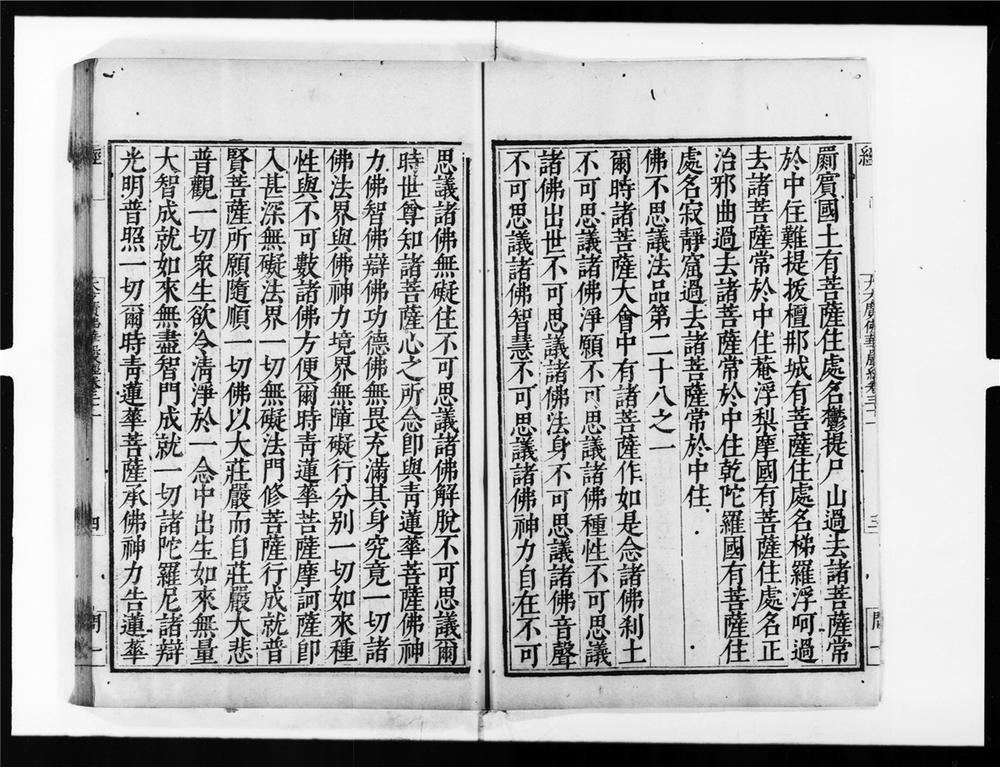 罽賓國土有菩薩住處名鬱提尸山過去諸菩薩常
於中住難提拔檀那城有菩薩住處名梯羅浮呵過
去諸菩薩常於中住菴浮梨摩國有菩薩住處名正
治邪曲過去諸菩薩常於中住乾陀羅國有菩薩住
處名寂靜窟過去諸菩薩常於中住
佛不思議法品第二十八之一
爾時諸菩薩大會中有諸菩薩作如是念諸佛剎土
不可思議諸佛淨願不可思議諸佛種性不可思議
諸佛出世不可思議諸佛法身不可思議諸佛音聲
不可思議諸佛智慧不可思議諸佛神力自在不可
思議諸佛無礙住不可思議諸佛解脫不可思議爾
時世尊知諸菩薩心之所念即與青蓮華菩薩佛神
力佛智佛辯佛功德佛無畏充滿其身究竟一切諸
佛法界與佛神力境界無障礙行分別一切如來種
性與不可數諸佛方便爾時青蓮華菩薩摩訶薩即
入甚深無礙法界一切無礙法門修菩薩行成就普
賢菩薩所願隨順一切佛以大莊嚴而自莊嚴大悲
普觀一切眾生欲令清淨於一念中出生如來無量
大智成就如來無盡智門成就一切諸陀羅尼諸辯
光明普照一切爾時青蓮華菩薩承佛神力告蓮華
經
四